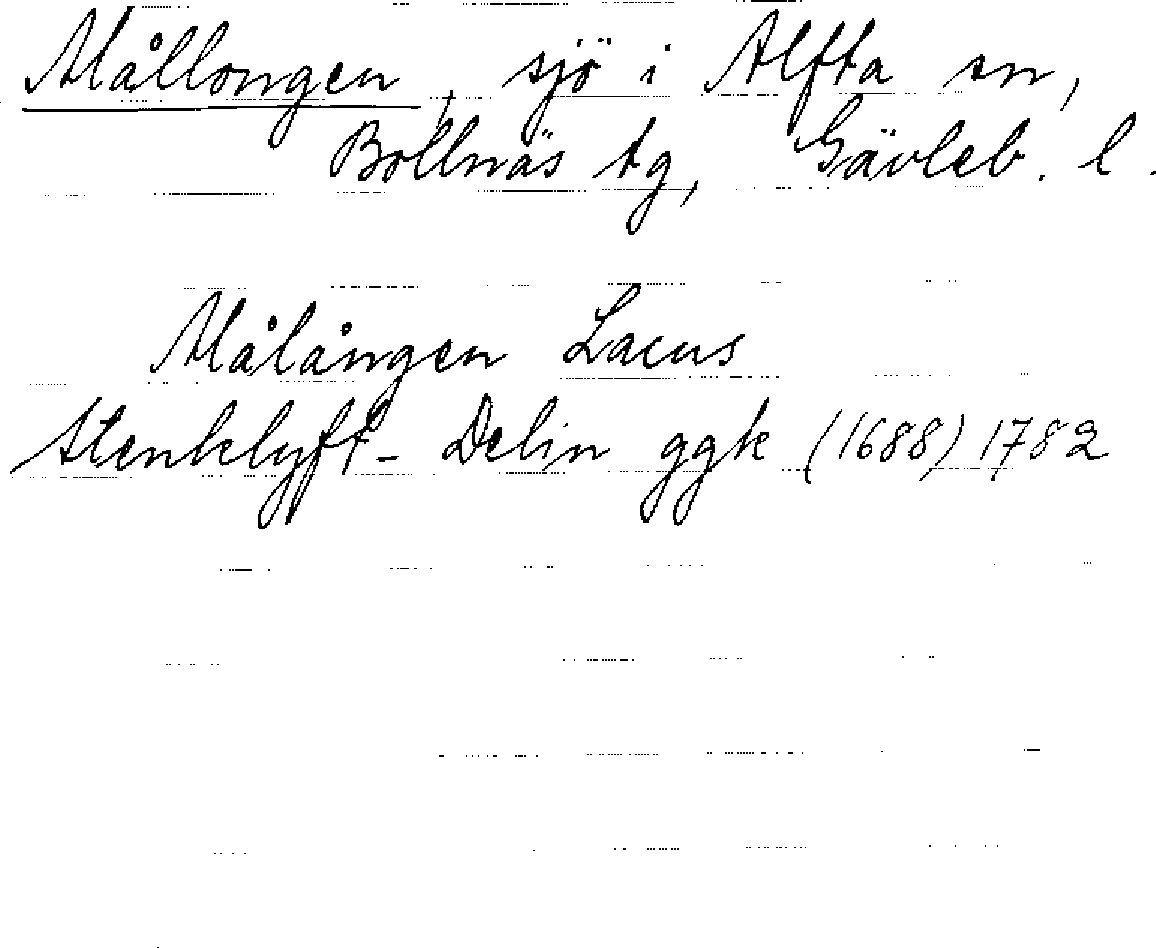 Mållongen, sjö i Alfta sn,
Bollnäs tg, Gävleb. l.
Målången Lacus
Stenklyft- Delin ggk (1688) 1782